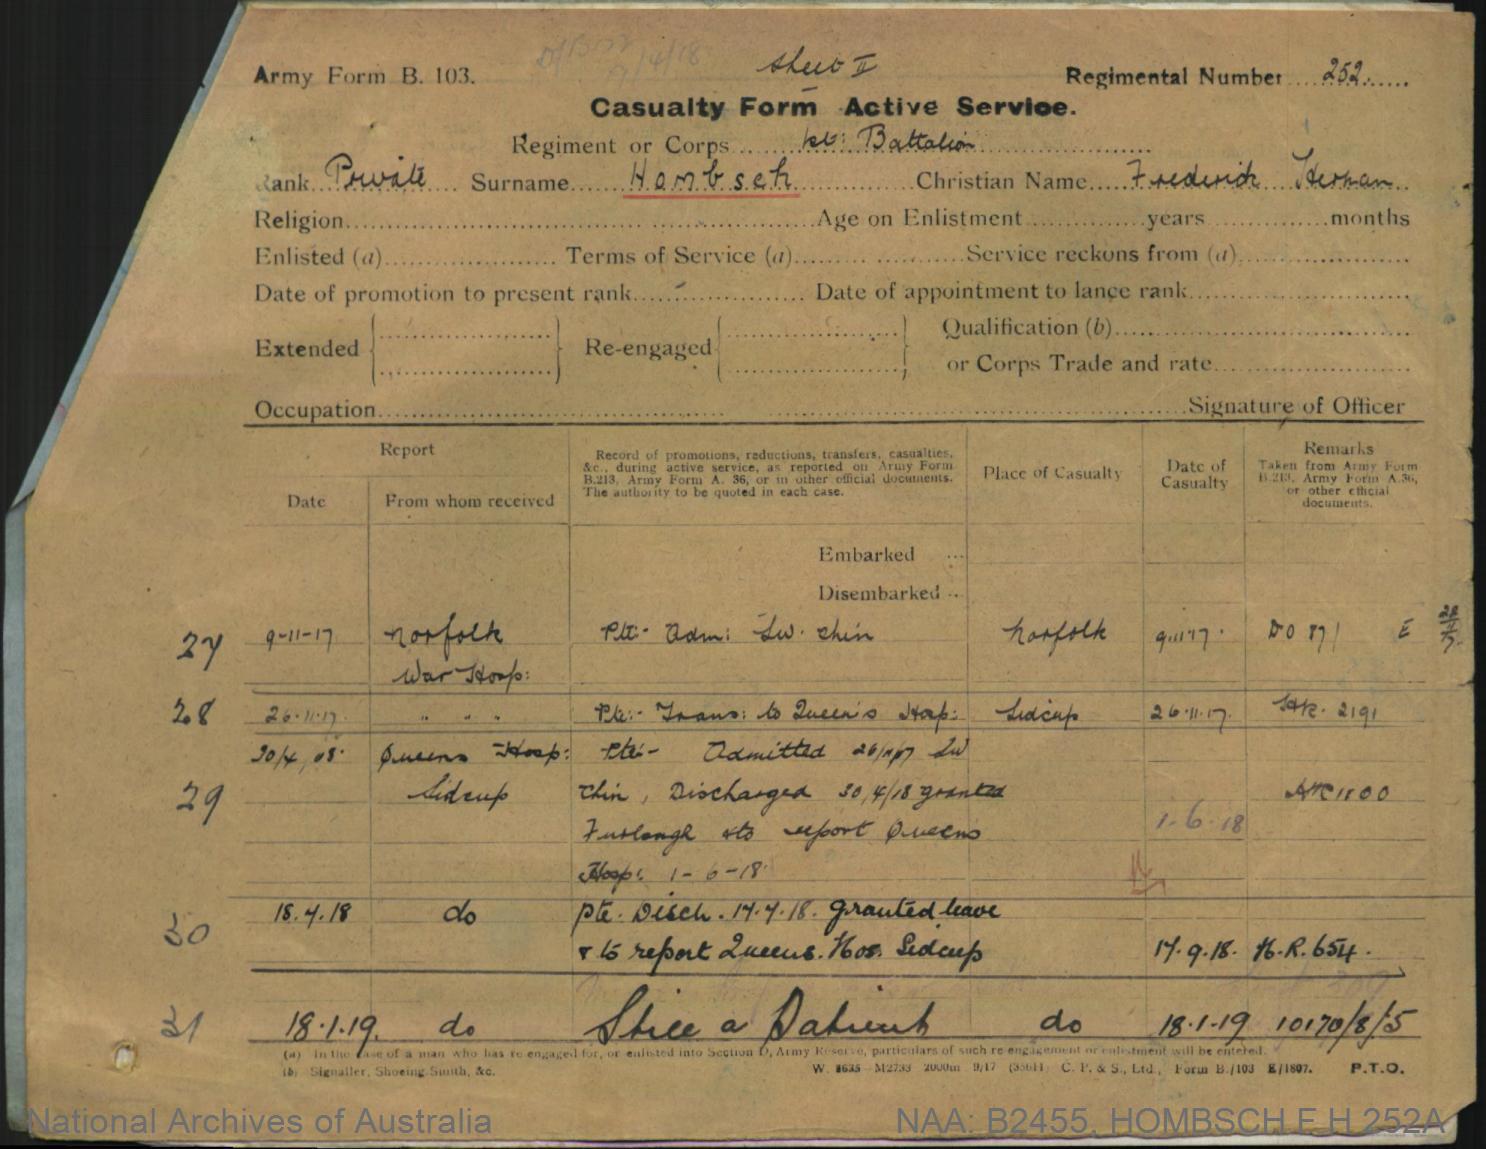 Sheet II
Army Form B. 103. Regimental Number 252.
Casualty Form Active Service.
Regiment or Corps 1st: Battalion
Rank Private Surname Hombsch Christian Name Frederick Herman
Religion Age on Enlistment years months
Enlisted (a) Terms of Service (a) Service reckons from (a)
Date of promotion to present rank Date of appointment to lance rank
Extended Re-engaged Qualification (b)
or Corps Trade and rate
Occupation Signature of Officer
Report
Date From whom received
Record of promotions, reductions, transfers, casualties,
&c., during active service, as reported on Army Form
B.213, Army Form A. 36, or in other official documents.
The authority to be quoted in each case.
Place of Casualty
Date of
Casualty
Remarks
Taken from Army Form
B.213, Army Form A.36,
or other official
documents.
Embarked
Disembarked
27 9-11-17 Norfolk Pte:- Adm: Sw. chin Norfolk 9.11.17. DO 871 E
War Hosp:
28 26.11.17. " " " Pte:- Trans: to Queen's Hosp: Sidcup 26.11.17. HR. 2191
Queens Hosp: Pte:- Admitted Sw
29 Sidcup Chin, Discharged 30/4/18 granted
Furlough & to report Queens 1-6-18
Hosp: 1-6-18
30 18.4.18 do Pte. Disch. 17.4.18. Granted leave
& to report Queens. Hos. Sidcup 17.9.18. H.R. 654.
31 18.1.19. do Still a Patient do 18.1.19 10170/8/5
(a) In the case of a man who has re-engaged for, or enlisted into Section D, Army Reserve, particulars of such re-engagement or enlistment will be entered.
(b) Signaller, Shoeing-Smith, &c. W. 8635—M2733 2000m 9/17 C. P. & S., Ltd., Form B./103 E/1807. P.T.O.
National Archives of Australia NAA: B2455, HOMBSCH F H 252A